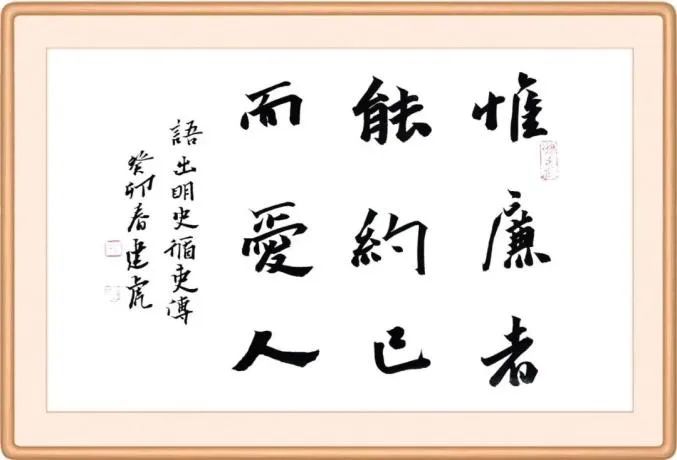 惟廉者
能約己
而愛人
語出明史循吏傳
癸卯春建虎